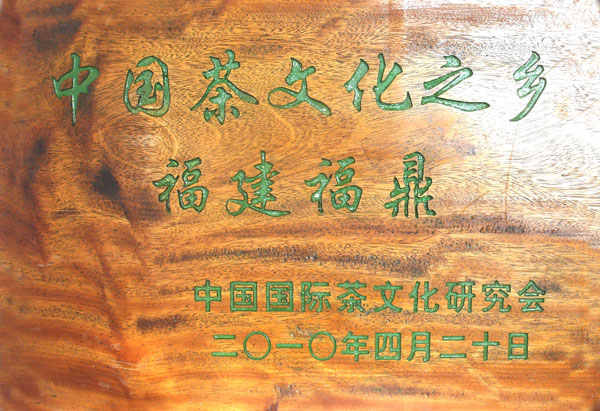 中国茶文化之乡
福建福鼎
中国国际茶文化研究会
二〇一〇年四月二十日